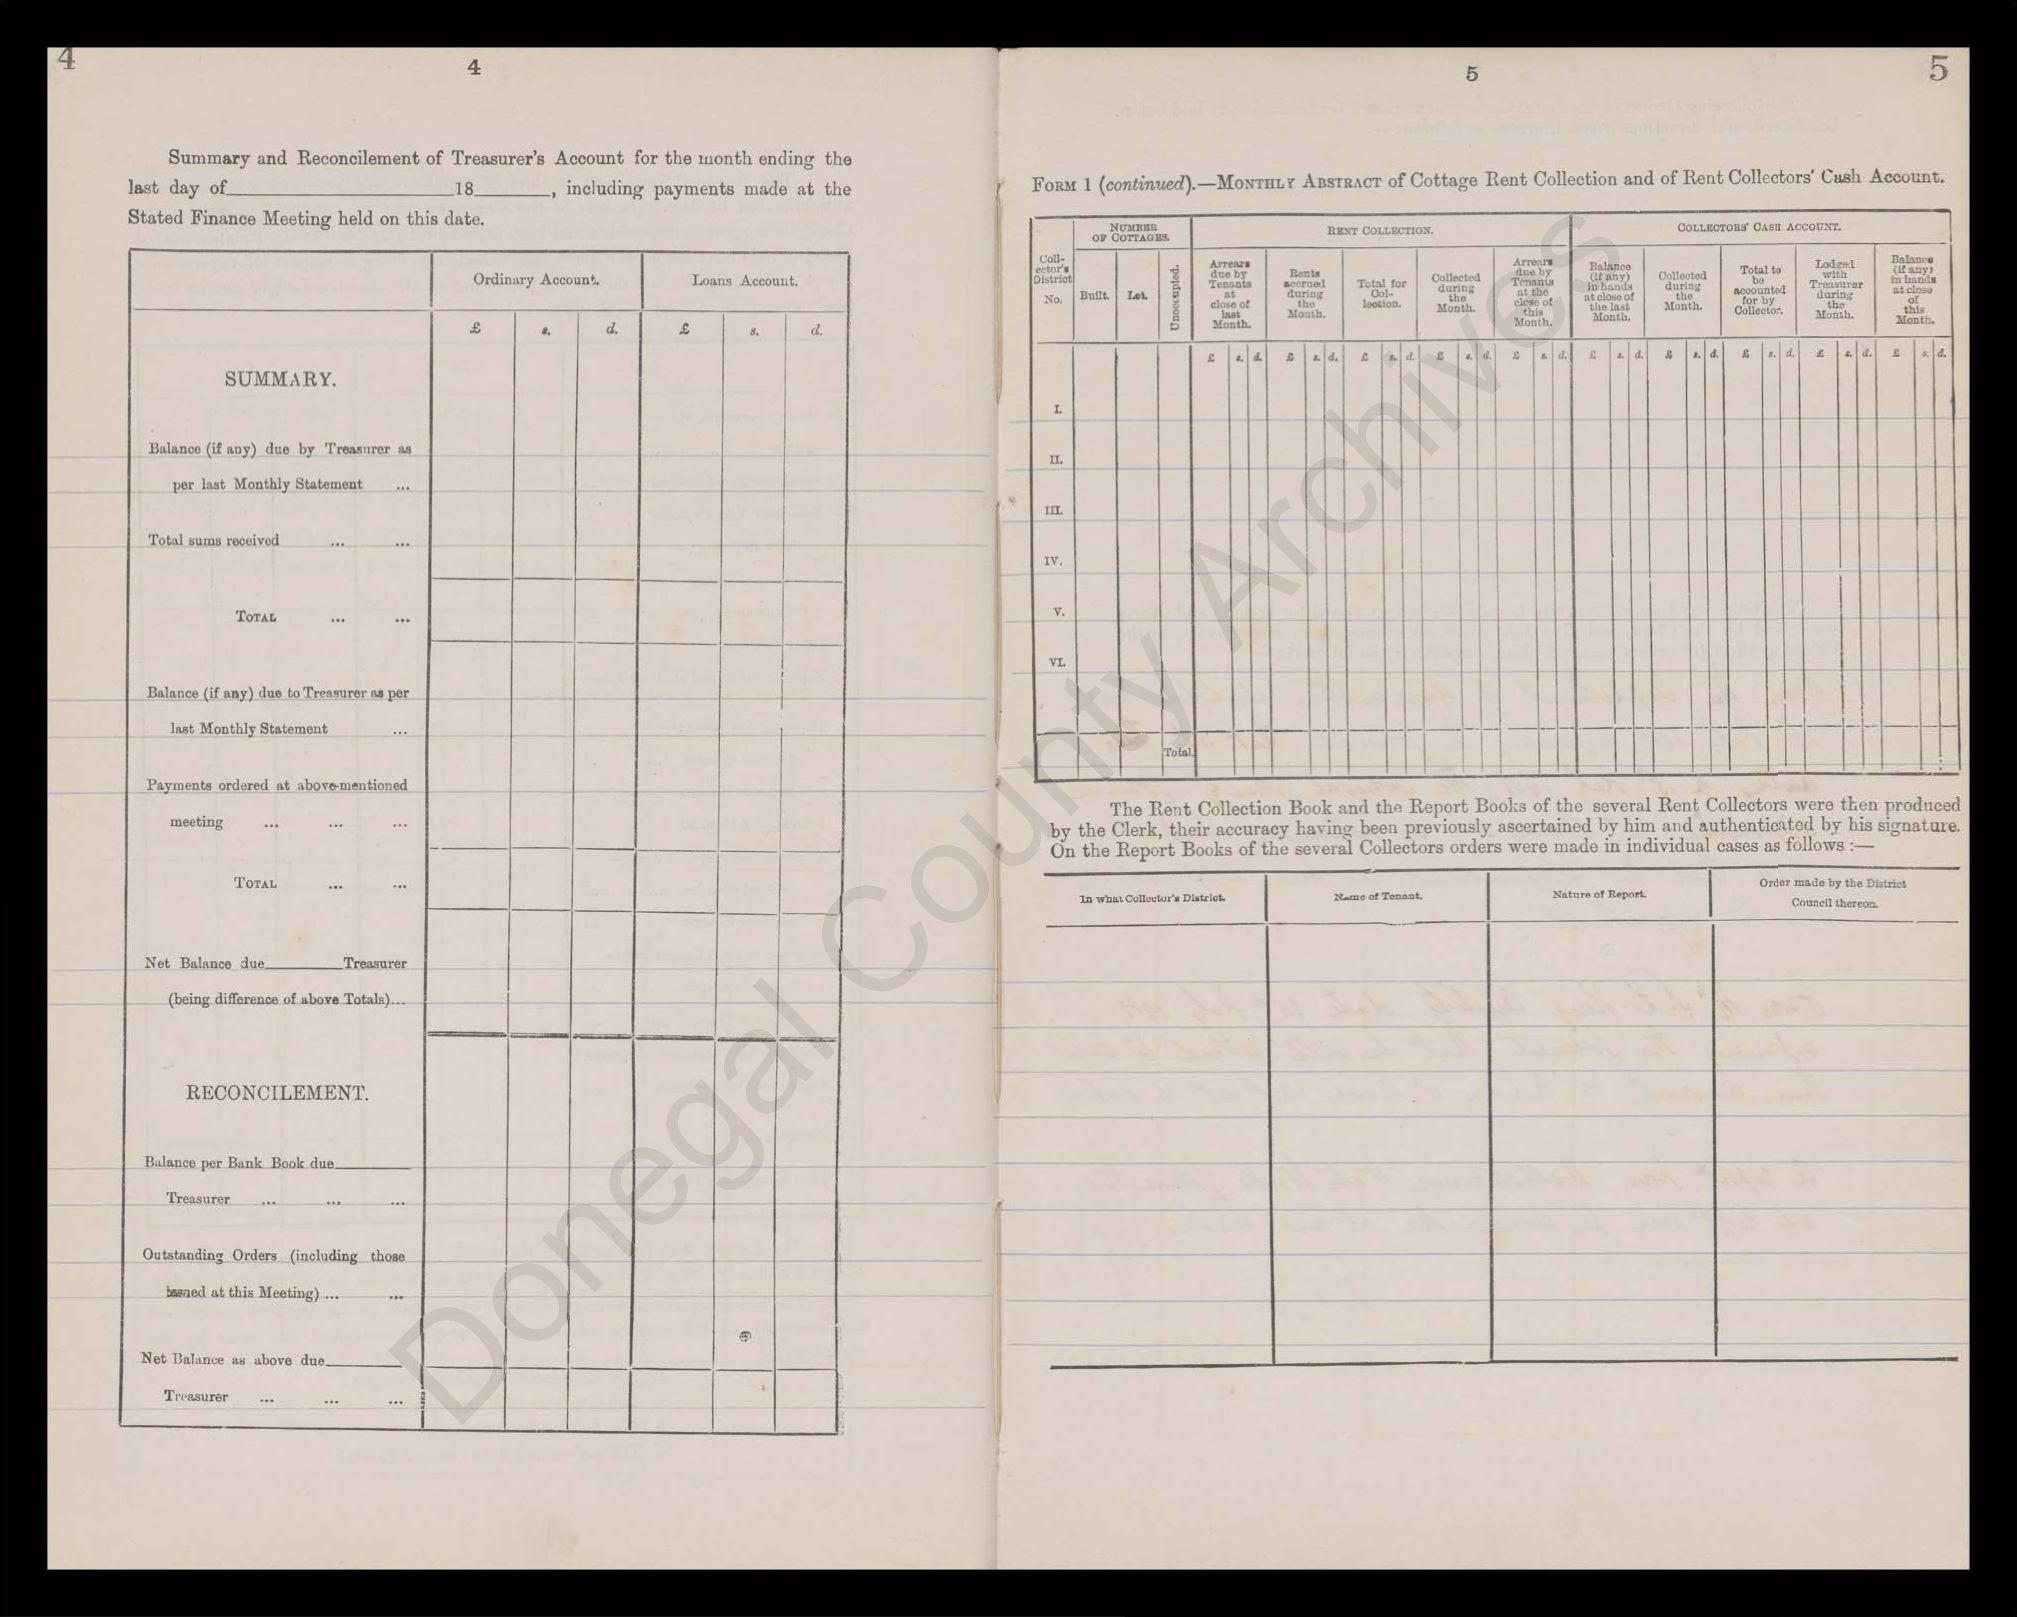 4
4
Summary and Reconcilement of Treasurer's Account for the month ending the
last day of 18 , including payments made at the
Stated Finance Meeting held on this date.
Ordinary Account. Loans Account.
£ s. d. £ s. d.
SUMMARY.
Balance (if any) due by Treasurer as
per last Monthly Statement ...
Total sums received ... ...
TOTAL ... ...
Balance (if any) due to Treasurer as per
last Monthly Statement ...
Payments ordered at above-mentioned
meeting ... ... ...
TOTAL ... ...
Net Balance due Treasurer
(being difference of above Totals)...
RECONCILEMENT.
Balance per Bank Book due
Treasurer ... ... ...
Outstanding Orders (including those
issued at this Meeting) ... ...
Net Balance as above due
Treasurer ... ... ...
5
5
FORM 1 (continued).—MONTHLY ABSTRACT of Cottage Rent Collection and of Rent Collectors' Cash Account.
Collector's District No.
NUMBER OF COTTAGES.
Built. Let. Unoccupied.
RENT COLLECTION.
Arrears due by Tenants at close of last Month.
Rents accrued during the Month.
Total for Collection.
Collected during the Month.
Arrears due by Tenants at the close of this Month.
COLLECTORS' CASH ACCOUNT.
Balance (if any) in hands at close of the last Month.
Collected during the Month.
Total to be accounted for by Collector.
Lodged with Treasurer during the Month.
Balance (if any) in hands at close of this Month.
£ s. d. £ s. d. £ s. d. £ s. d. £ s. d. £ s. d. £ s. d. £ s. d. £ s. d. £ s. d.
I.
II.
III.
IV.
V.
VI.
Total.
The Rent Collection Book and the Report Books of the several Rent Collectors were then produced
by the Clerk, their accuracy having been previously ascertained by him and authenticated by his signature.
On the Report Books of the several Collectors orders were made in individual cases as follows :—
In what Collector's District. Name of Tenant. Nature of Report. Order made by the District Council thereon.
Donegal County Archives